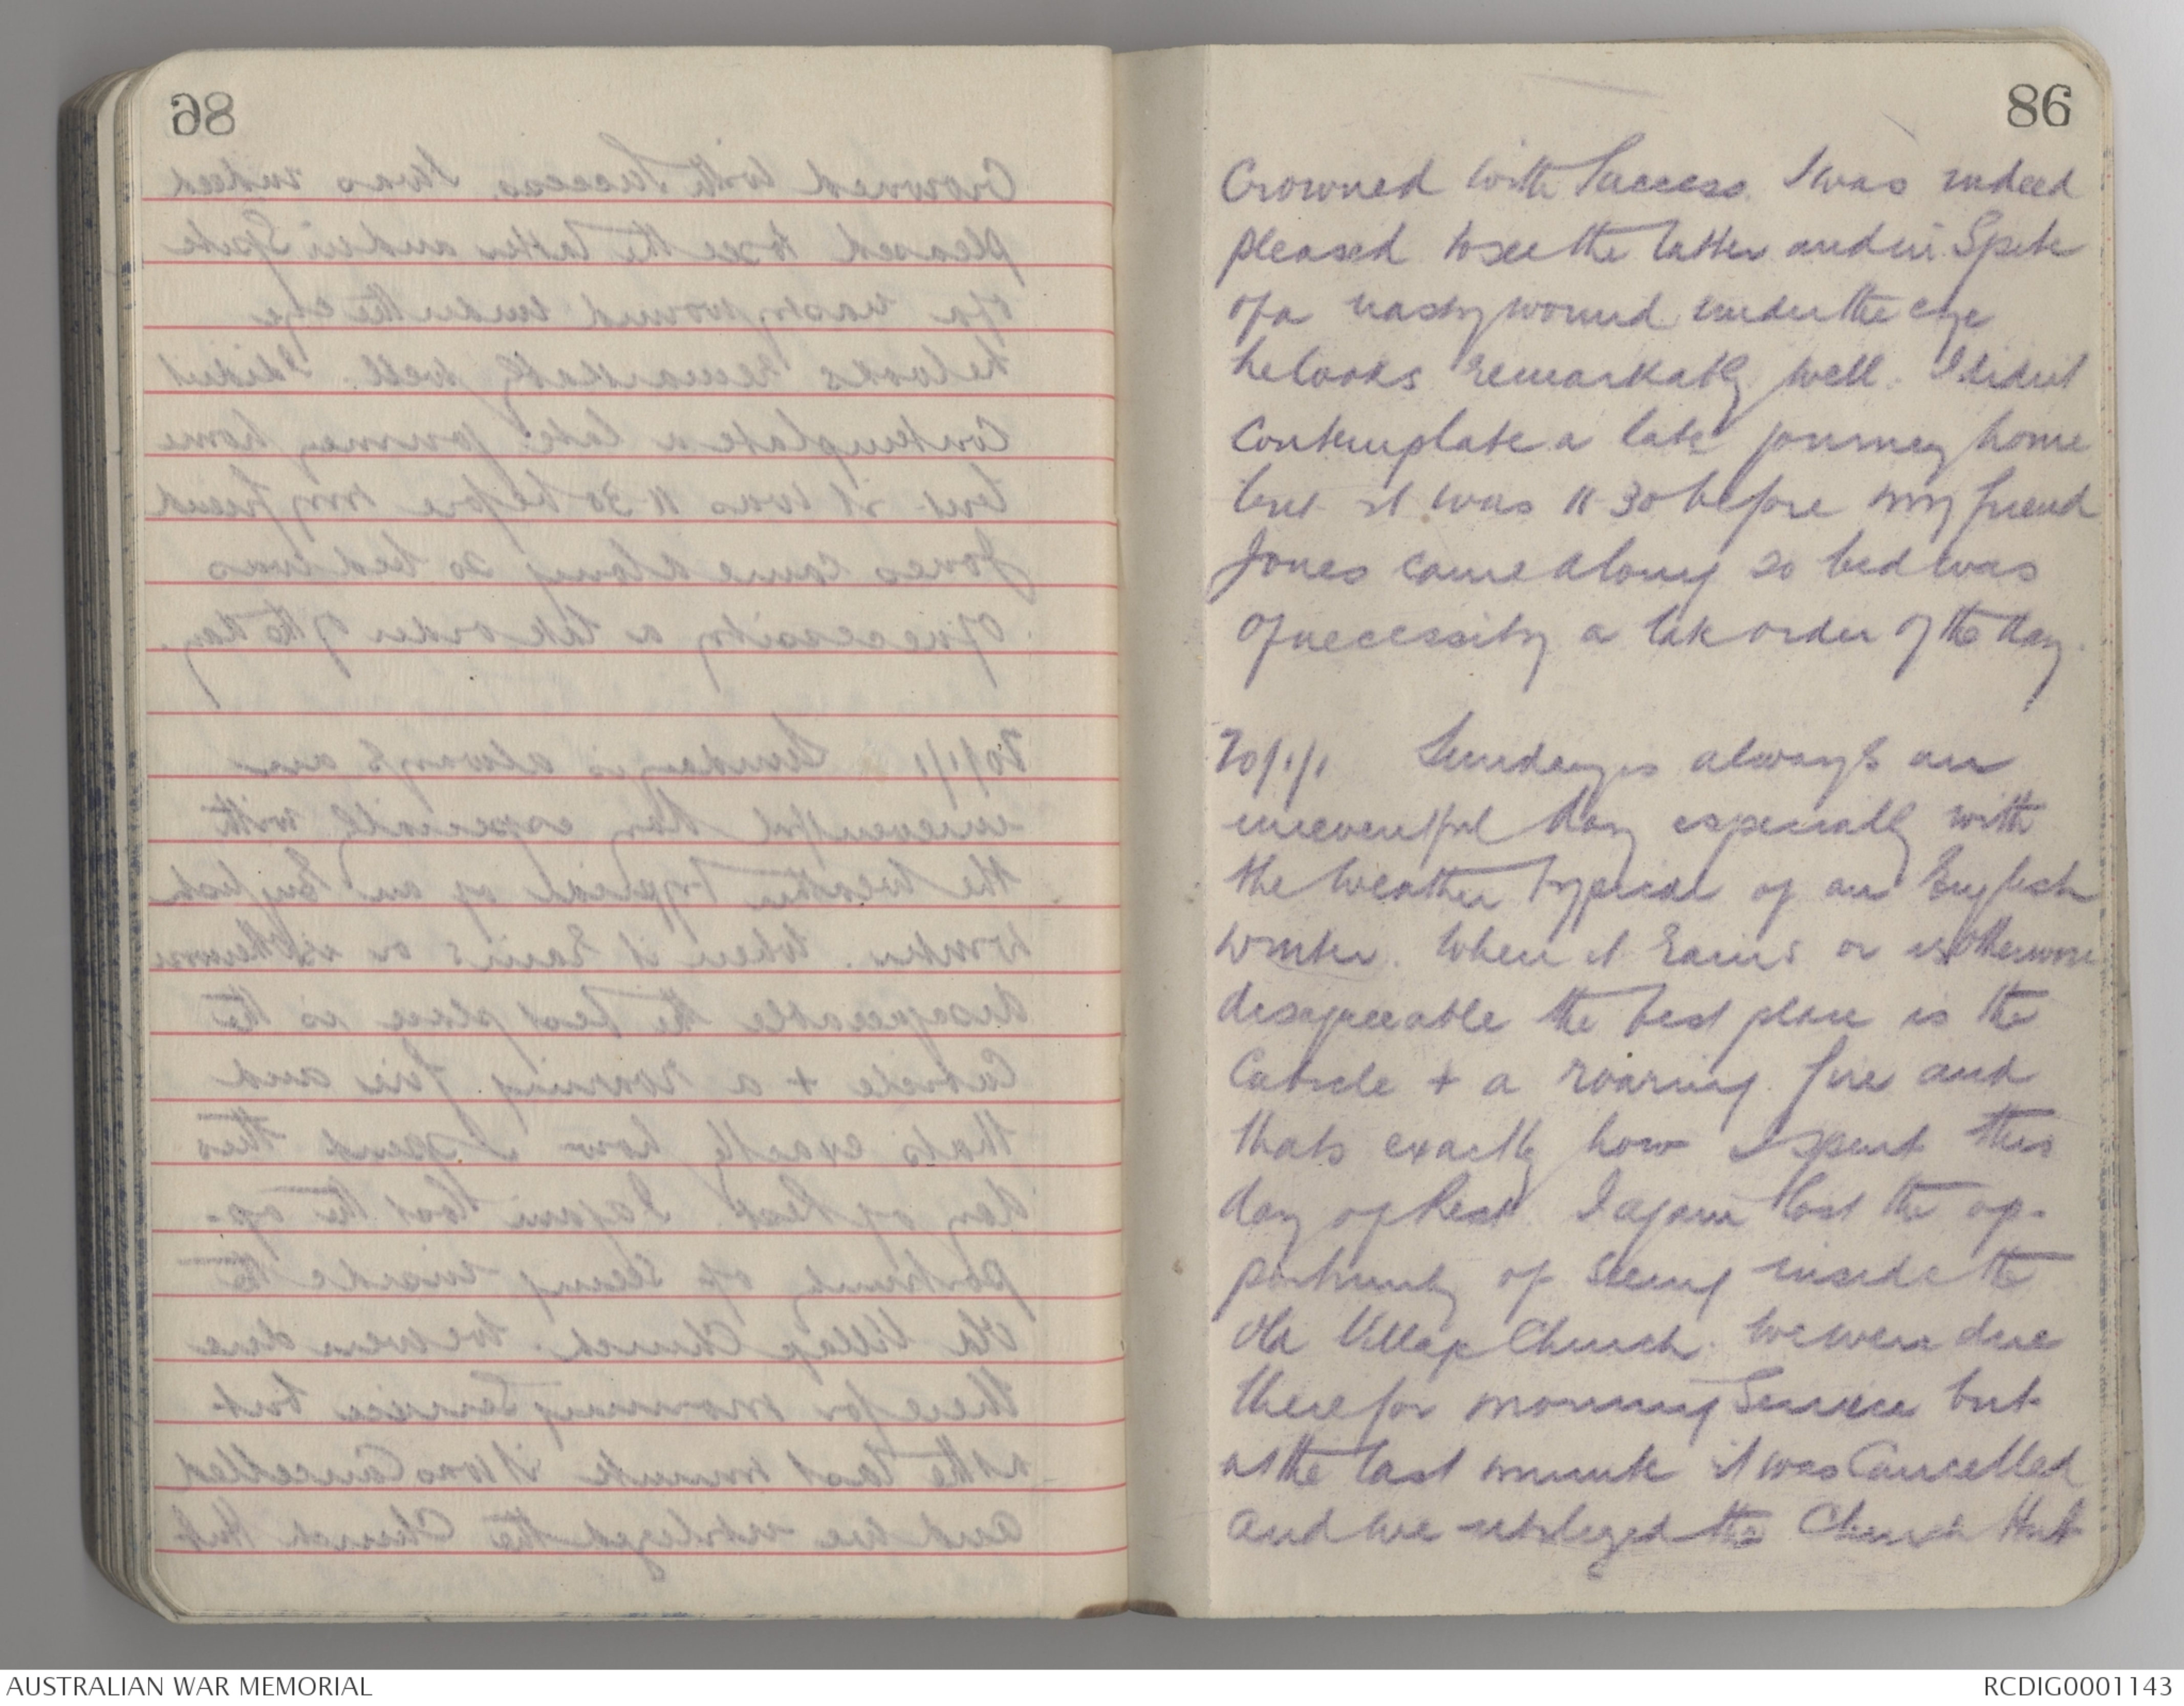 86
Crowned with Success. I was indeed
pleased to see the latter and in Spite
of a nasty wound under the eye
he looks remarkably well. I didnt
Contemplate a late journey home
but it was 11-30 before my friend
Jones came along so bed was
of necessity a late order of the day.
20/1/1 Sunday is always an
uneventful day especially with
the weather typical of an English
winter. When it rains or is otherwise
disagreeable the best place is the
Cubicle + a roaring fire and
thats exactly how I spent this
day of Rest. I again lost the op-
portunity of seeing inside the
old Village Church. We were due
there for morning Service but
at the last minute it was Cancelled
and we utilized the Church Hut
AUSTRALIAN WAR MEMORIAL
RCDIG0001143